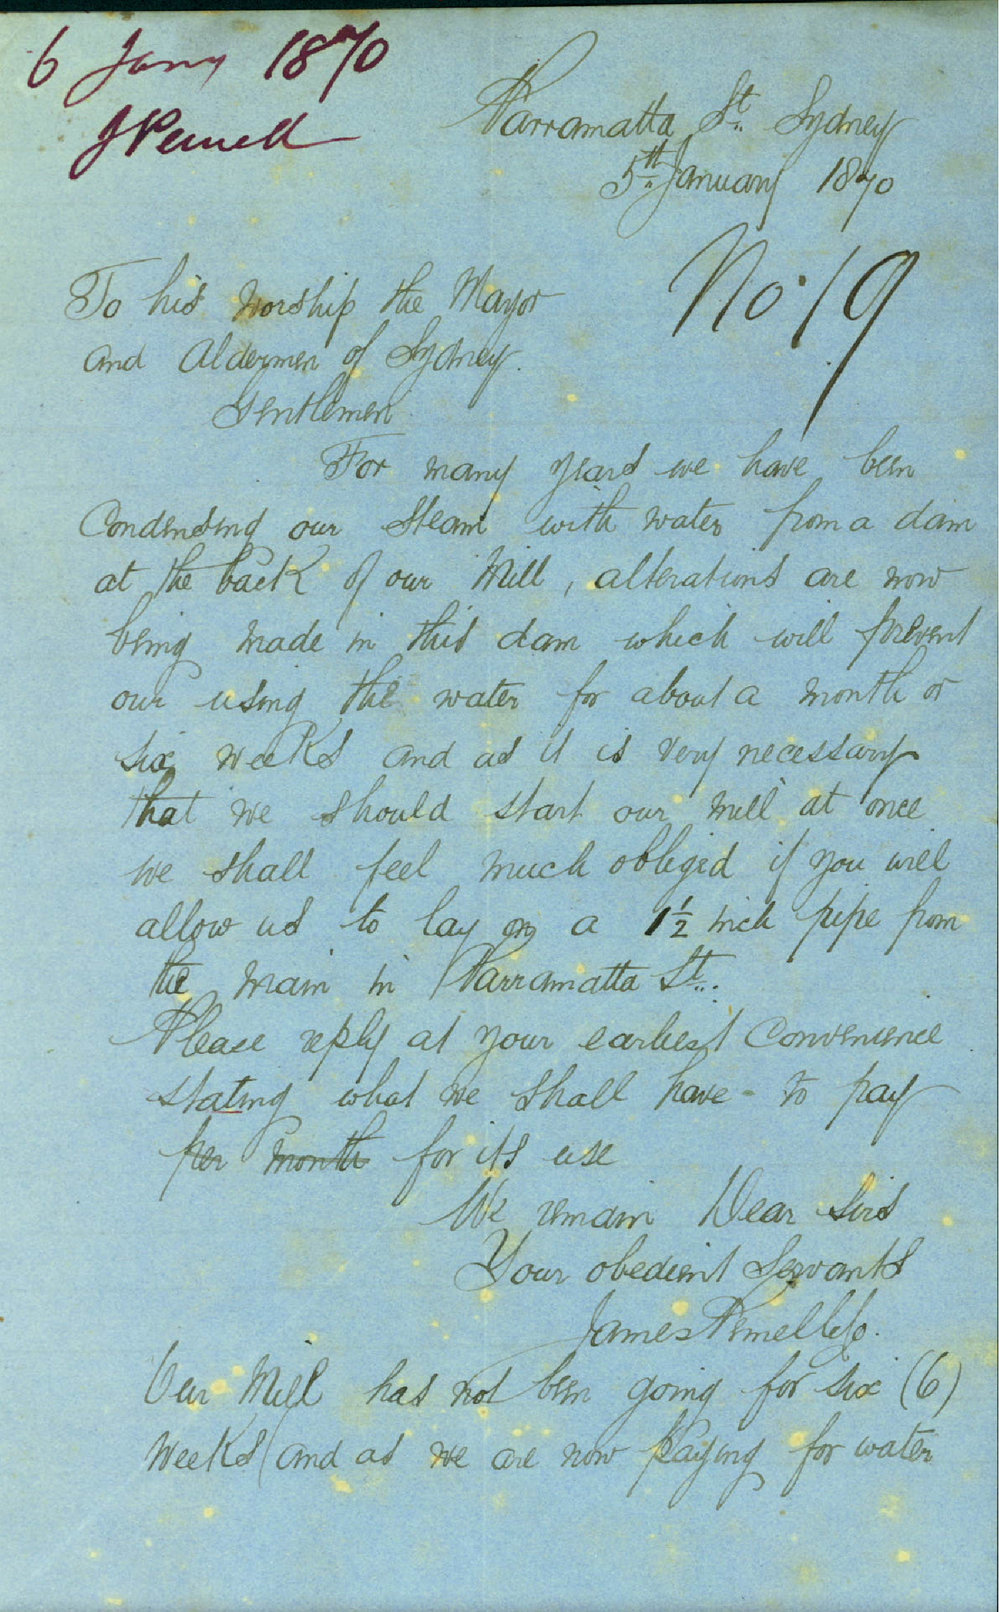 6 Jany 1870
J Pemell
Parramatta St. Sydney
5th January 1870
No. 19
To his worship the Mayor
and Aldermen of Sydney.
Gentlemen
For many years we have been
Condensing our Steam with water from a dam
at the back of our Mill, alterations are now
being made in this dam which will prevent
our using the water for about a month or
six weeks and as it is very necessary
that we should start our mill at once
we shall feel much obliged if you will
allow us to lay on a 1½ inch pipe from
the main in Parramatta St.
Please reply at your earliest Convenience
stating what we shall have to pay
per month for its use
We remain Dear Sirs
Your obedient Servants
James Pemell & Co.
Our Mill has not been going for six (6)
weeks and as we are now paying for water